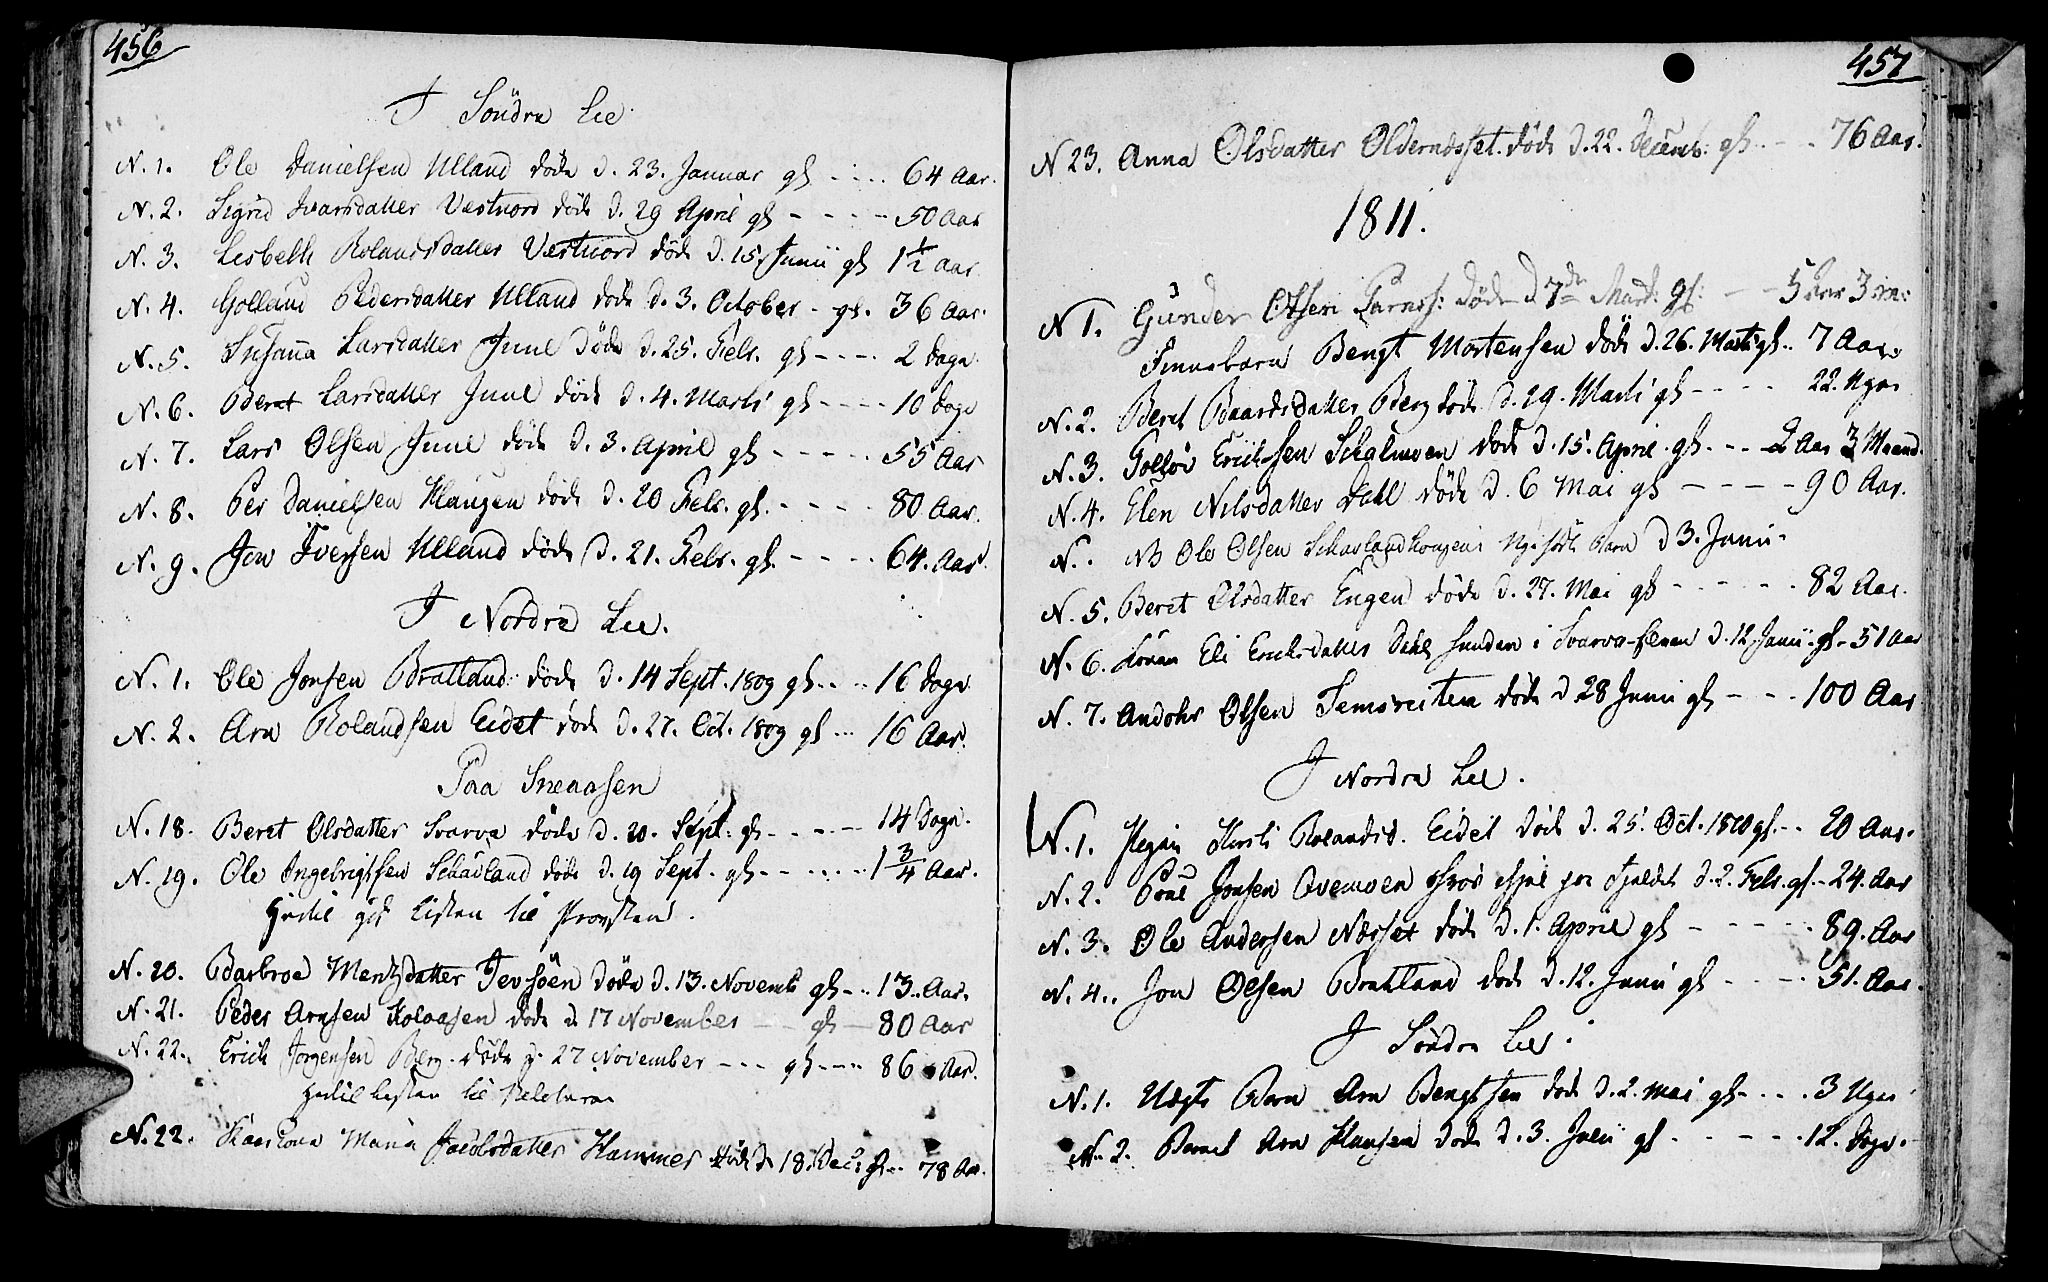 456
I Söndra Lie
N. 1. Ole Danielsen Ulland döde d. 23. Januar gl. - - - 64 Aar.
N. 2. Sigrid Ivarsdatter Vestnord döde d. 29 April gl - - - - 50 Aar
N. 3. Lisbeth Rolandsdatter Vestnord döde d. 15. Junii gl 1 1/2 Aar
N. 4. Golland Pedersdatter Ulland döde d. 3. October - gl. 36 Aar.
N. 5. Susana Larsdatter Juul döde d. 25. Febr. gl - - - - 2 Dage
N. 6. Beret Larsdatter Juul döde d. 4. Marti gl - - - - 10 Dage
N. 7. Lars Olsen Juul döde d. 3. April gl - - - - - 55 Aar
N. 8. Per Danielsen Haugen döde d. 20 Febr. gl. - - - - 80 Aar.
N. 9. Jon Iversen Ulland döde d. 21. Febr. gl. - - - - 64. Aar
I Nordre Lie.
N. 1. Ole Jonsen Bratland döde d. 14 Sept. 1809 gl. - - 16 Dage
N. 2. Arn Rolandsen Eidet döde d. 27. Oct. 1809 gl - - - 16 Aar.
Paa Sneaasen
N. 18. Beret Olsdatter Svarva döde d. 20. Sept: gl - - - - - 14 Dage.
N. 19. Ole Ingebrigtsen Schavland döde d. 19 Sept. gl - - - - - - 1 3/4 Aar.
Hertil gik Listen til Provsten.
N. 20. Barbroe Mentzdatter Jevsöen döde d. 13. Novemb gl - - 13. Aar.
N. 21. Peder Arnsen Kolaasen döde d 17 November - - gl - 80 Aar
N. 22. Erich Jörgensen Berg. döde d. 27 November - - - gl - - - - 86 Aar.
Hertil Listen til
N. 22. Maria Jacobsdatter Hammer döde d 18. Dec: gl - - 78 Aar.
457
N 23. Anna Olsdatter döde d. 22. Decemb: gl. - - . 76 Aar.
1811.
N 1. Gunder Olsen döde d 7de Mart: gl: - - 5 Aar 3 m:
Finnebarn Bengt Mortensen döde d. 26. Marti gl. . 7 Aar.
N. 2. Beret Baardsdatter Berg döde d. 29. Marti gl - - - - 22. Uger
N. 3. Erichsen Schalmoen döde d. 15. April. gl. - - - 2 Aar 3 Maaned.
N. 4. Elen Nilsdatter Dahl döde d. 6 Mai gl - - - - - 90 Aar.
N. . NB Ole Olsen Barn d 3. Junii -
N. 5. Beret Olsdatter Engen döde d. 27. Mai gl - - - - - - 82 Aar.
N. 6. Konen Eli Erichsdatter Dahl funden i Svarva-Elven d. 12. Junii. gl - 51 Aar
N. 7. Olsen döde d 28 Junii gl - - - - 100 Aar
I Nordra Lie.
N. 1. Kirsti Rolandsd. Eidet döde d. 25. Oct. 1810 gl. - - 20 Aar.
N. 2. Poul Jonsen Ovemoen d. 2. Febr. gl. - 24. Aar
N. 3. Ole Andersen Næsset döde d. 1. April gl - - - - - - 89. Aar
N. 4. Jon Olsen Bratland döde d. 12. Junii gl - - - - - 51. Aar.
I Söndre Lie.
N. 1. Barn Arn Bengtsen döde d. 2. Mai gl - . . . 3 Uger
N. 2. Barnet Arn Hansen döde d. 3. Julii gl - - - - - - 12. Dage.